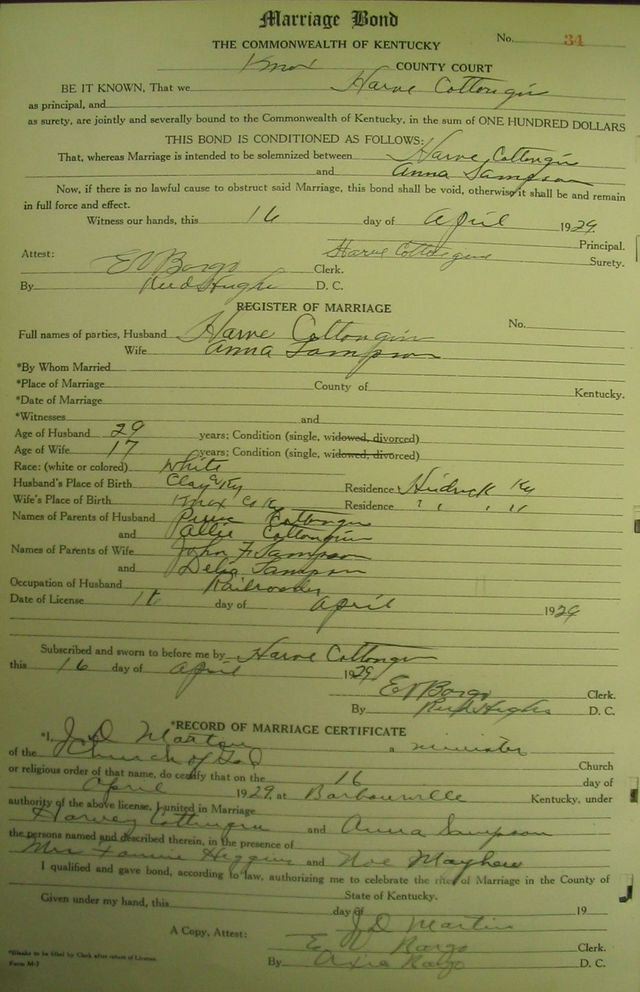 Marriage Bond
No. 34
THE COMMONWEALTH OF KENTUCKY
Knox COUNTY COURT
BE IT KNOWN, That we Harve Cottongin
as principal, and
as surety, are jointly and severally bound to the Commonwealth of Kentucky, in the sum of ONE HUNDRED DOLLARS
THIS BOND IS CONDITIONED AS FOLLOWS:
That, whereas Marriage is intended to be solemnized between Harve Cottongin
and Anna Sampson
Now, if there is no lawful cause to obstruct said Marriage, this bond shall be void, otherwise it shall be and remain
in full force and effect.
Witness our hands, this 16 day of April 1929.
Harve Cottongin Principal.
Attest: Surety.
Clerk.
By D. C.
REGISTER OF MARRIAGE
No.
Full names of parties, Husband Harve Cottongin
Wife Anna Sampson
*By Whom Married
*Place of Marriage County of Kentucky.
*Date of Marriage
*Witnesses and
Age of Husband 29 years; Condition (single, widowed, divorced)
Age of Wife 17 years; Condition (single, widowed, divorced)
Race: (white or colored) White
Husband's Place of Birth Clay Ky Residence Heidrick Ky
Wife's Place of Birth Knox Co Ky Residence " " "
Names of Parents of Husband Cottongin
and Allie Cottongin
Names of Parents of Wife John F. Sampson
and Sampson
Occupation of Husband Railroader
Date of License 16 day of April 1929
Subscribed and sworn to before me by Harve Cottongin
this 16 day of April 1929.
Clerk.
By D. C.
*RECORD OF MARRIAGE CERTIFICATE
*I, J D Martin a minister
of the Church of God Church
or religious order of that name, do certify that on the 16 day of
April 1929, at Barbourville Kentucky, under
authority of the above license, I united in Marriage
Harvey Cottongin and Anna Sampson
the persons named and described therein, in the presence of
Mrs Higgins and Noe Mayhew
I qualified and gave bond, according to law, authorizing me to celebrate the rites of Marriage in the County of
State of Kentucky.
Given under my hand, this day of 19
J D Martin
A Copy, Attest: Clerk.
By D. C.
*Blanks to be filled by Clerk after return of License.
Form M-7